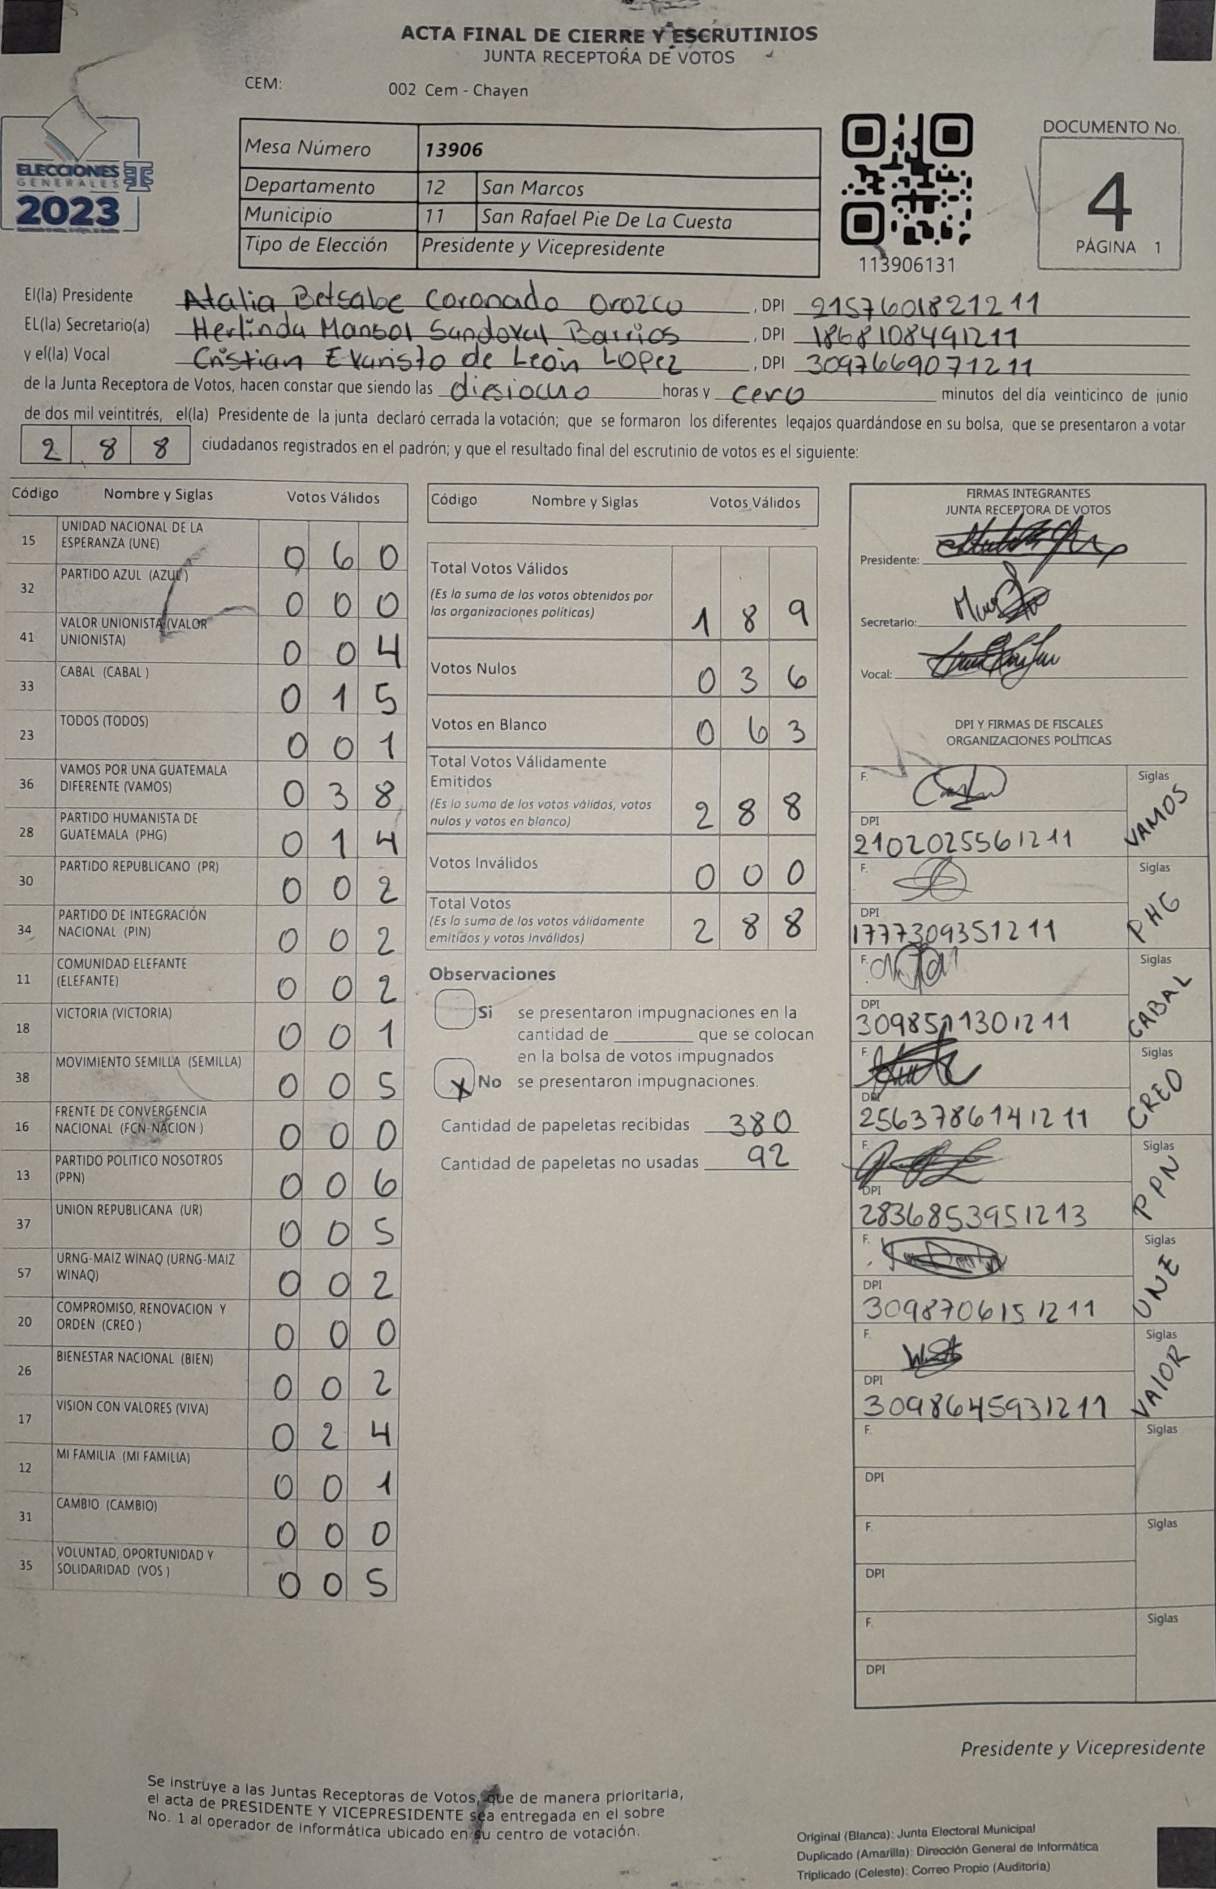 ACTA FINAL DE CIERRE Y ESCRUTINIOS
JUNTA RECEPTORA DE VOTOS
CEM: 002 Cem - Chayen
ELECCIONES
GENERALES
2023
Mesa Número 13906
Departamento 12 San Marcos
Municipio 11 San Rafael Pie De La Cuesta
Tipo de Elección Presidente y Vicepresidente
113906131
DOCUMENTO No.
4
PÁGINA 1
El(la) Presidente Atalia Betsabe Coronado Orozco, DPI 2157601821211
EL(la) Secretario(a) Herlinda Marisol Sandoval Barrios, DPI 1868108491211
y el(la) Vocal Cristian Evaristo de León López, DPI 3097669071211
de la Junta Receptora de Votos, hacen constar que siendo las diesiocho horas y cero minutos del día veinticinco de junio
de dos mil veintitrés, el(la) Presidente de la junta declaró cerrada la votación; que se formaron los diferentes legajos guardándose en su bolsa, que se presentaron a votar
2 8 8 ciudadanos registrados en el padrón; y que el resultado final del escrutinio de votos es el siguiente:
Código Nombre y Siglas Votos Válidos
15 UNIDAD NACIONAL DE LA ESPERANZA (UNE) 0 6 0
32 PARTIDO AZUL (AZUL) 0 0 0
41 VALOR UNIONISTA (VALOR UNIONISTA) 0 0 4
33 CABAL (CABAL ) 0 1 5
23 TODOS (TODOS) 0 0 1
36 VAMOS POR UNA GUATEMALA DIFERENTE (VAMOS) 0 3 8
28 PARTIDO HUMANISTA DE GUATEMALA (PHG) 0 1 4
30 PARTIDO REPUBLICANO (PR) 0 0 2
34 PARTIDO DE INTEGRACIÓN NACIONAL (PIN) 0 0 2
11 COMUNIDAD ELEFANTE (ELEFANTE) 0 0 2
18 VICTORIA (VICTORIA) 0 0 1
38 MOVIMIENTO SEMILLA (SEMILLA) 0 0 5
16 FRENTE DE CONVERGENCIA NACIONAL (FCN-NACION ) 0 0 0
13 PARTIDO POLITICO NOSOTROS (PPN) 0 0 6
37 UNION REPUBLICANA (UR) 0 0 5
57 URNG-MAIZ WINAQ (URNG-MAIZ WINAQ) 0 0 2
20 COMPROMISO, RENOVACION Y ORDEN (CREO ) 0 0 0
26 BIENESTAR NACIONAL (BIEN) 0 0 2
17 VISION CON VALORES (VIVA) 0 2 4
12 MI FAMILIA (MI FAMILIA) 0 0 1
31 CAMBIO (CAMBIO) 0 0 0
35 VOLUNTAD, OPORTUNIDAD Y SOLIDARIDAD (VOS ) 0 0 5
Código Nombre y Siglas Votos Válidos
Total Votos Válidos
(Es la suma de los votos obtenidos por
las organizaciones políticas) 1 8 9
Votos Nulos 0 3 6
Votos en Blanco 0 6 3
Total Votos Válidamente
Emitidos
(Es la suma de los votos válidos, votos
nulos y votos en blanco) 2 8 8
Votos Inválidos 0 0 0
Total Votos
(Es la suma de los votos válidamente
emitidos y votos inválidos) 2 8 8
Observaciones
Si se presentaron impugnaciones en la
cantidad de ________ que se colocan
en la bolsa de votos impugnados
X No se presentaron impugnaciones.
Cantidad de papeletas recibidas 380
Cantidad de papeletas no usadas 92
FIRMAS INTEGRANTES
JUNTA RECEPTORA DE VOTOS
Presidente:
Secretario:
Vocal:
DPI Y FIRMAS DE FISCALES
ORGANIZACIONES POLÍTICAS
F. Siglas VAMOS
DPI 2102025561211
F. Siglas PHG
DPI 1777309351211
F. Siglas CABAL
DPI 3098511301211
F. Siglas CREO
DPI 2563786141211
F. Siglas PPN
DPI 2836853951213
F. Siglas UNE
DPI 3098706151211
F. Siglas VALOR
DPI 3098645931211
F. Siglas
DPI
F. Siglas
DPI
F. Siglas
DPI
Presidente y Vicepresidente
Se instruye a las Juntas Receptoras de Votos, que de manera prioritaria,
el acta de PRESIDENTE Y VICEPRESIDENTE sea entregada en el sobre
No. 1 al operador de informática ubicado en su centro de votación.
Original (Blanca): Junta Electoral Municipal
Duplicado (Amarilla): Dirección General de Informática
Triplicado (Celeste): Correo Propio (Auditoría)